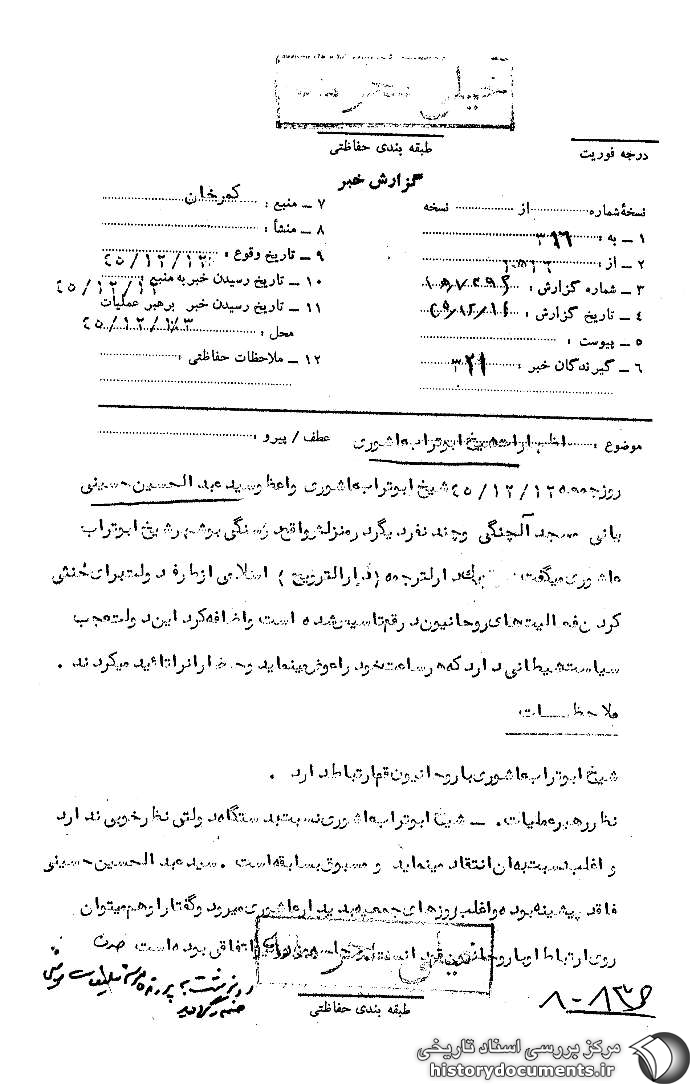 خیلی محرمانه
طبقه بندی حفاظتی
درجه فوریت
گزارش خبر
نسخهٔ شماره از نسخه
۱ ــ به : ۳۱۶
۲ ــ از :
۳ ــ شماره گزارش :
۴ ــ تاریخ گزارش :
۵ ــ پیوست :
۶ ــ گیرندگان خبر : ۳۲۱
۷ ــ منبع : کمرخان
۸ ــ منشأ :
۹ ــ تاریخ وقوع : ۴۵/۱۲/۱۲
۱۰ ــ تاریخ رسیدن خبر به منبع : ۴۵/۱۲/۱۲
۱۱ ــ تاریخ رسیدن خبر برهبر عملیات
محل : ۴۵/۱۲/۱۳
۱۲ ــ ملاحظات حفاظتی :
موضوع : اظهارات شیخ ابوتراب عاشوری
عطف / پیرو :
روز جمعه ۴۵/۱۲/۱۲ شیخ ابوتراب عاشوری واعظ وسید عبدالحسین حسینی
بانی مسجد آلچنگی وچند نفر دیگر در منزلش واقع در سنگی بوشهر شیخ ابوتراب
عاشوری میگفت یک دارالترجمه (دارالترویج) اسلامی از طرف دولت برای خنثی
کردن فعالیت های روحانیون در قم تاسیس شده است واضافه کرد این دولت عجب
سیاست شیطانی دارد که هر ساعت خود را عوض مینماید وحضار او را تائید میکردند .
ملاحظــات
شیخ ابوتراب عاشوری با روحانیون قم ارتباط دارد .
نظر رهبر عملیات. ــ شیخ ابوتراب عاشوری نسبت بدستگاه دولتی نظر خوبی ندارد
و اغلب نسبت به آن انتقاد مینماید و مسبوق بسابقه است . سید عبدالحسین حسینی
فاقد پیشینه بوده و اغلب روزهای جمعه بدیدار عاشوری میرود وگفتار او هم میتوان
روی ارتباط او با روحانیون قم دانست اتفاقی بوده است
خیلی محرمانه
طبقه بندی حفاظتی
رونوشت به پرونده
ضمیمه گردید
مرکز بررسی اسناد تاریخی
historydocuments.ir